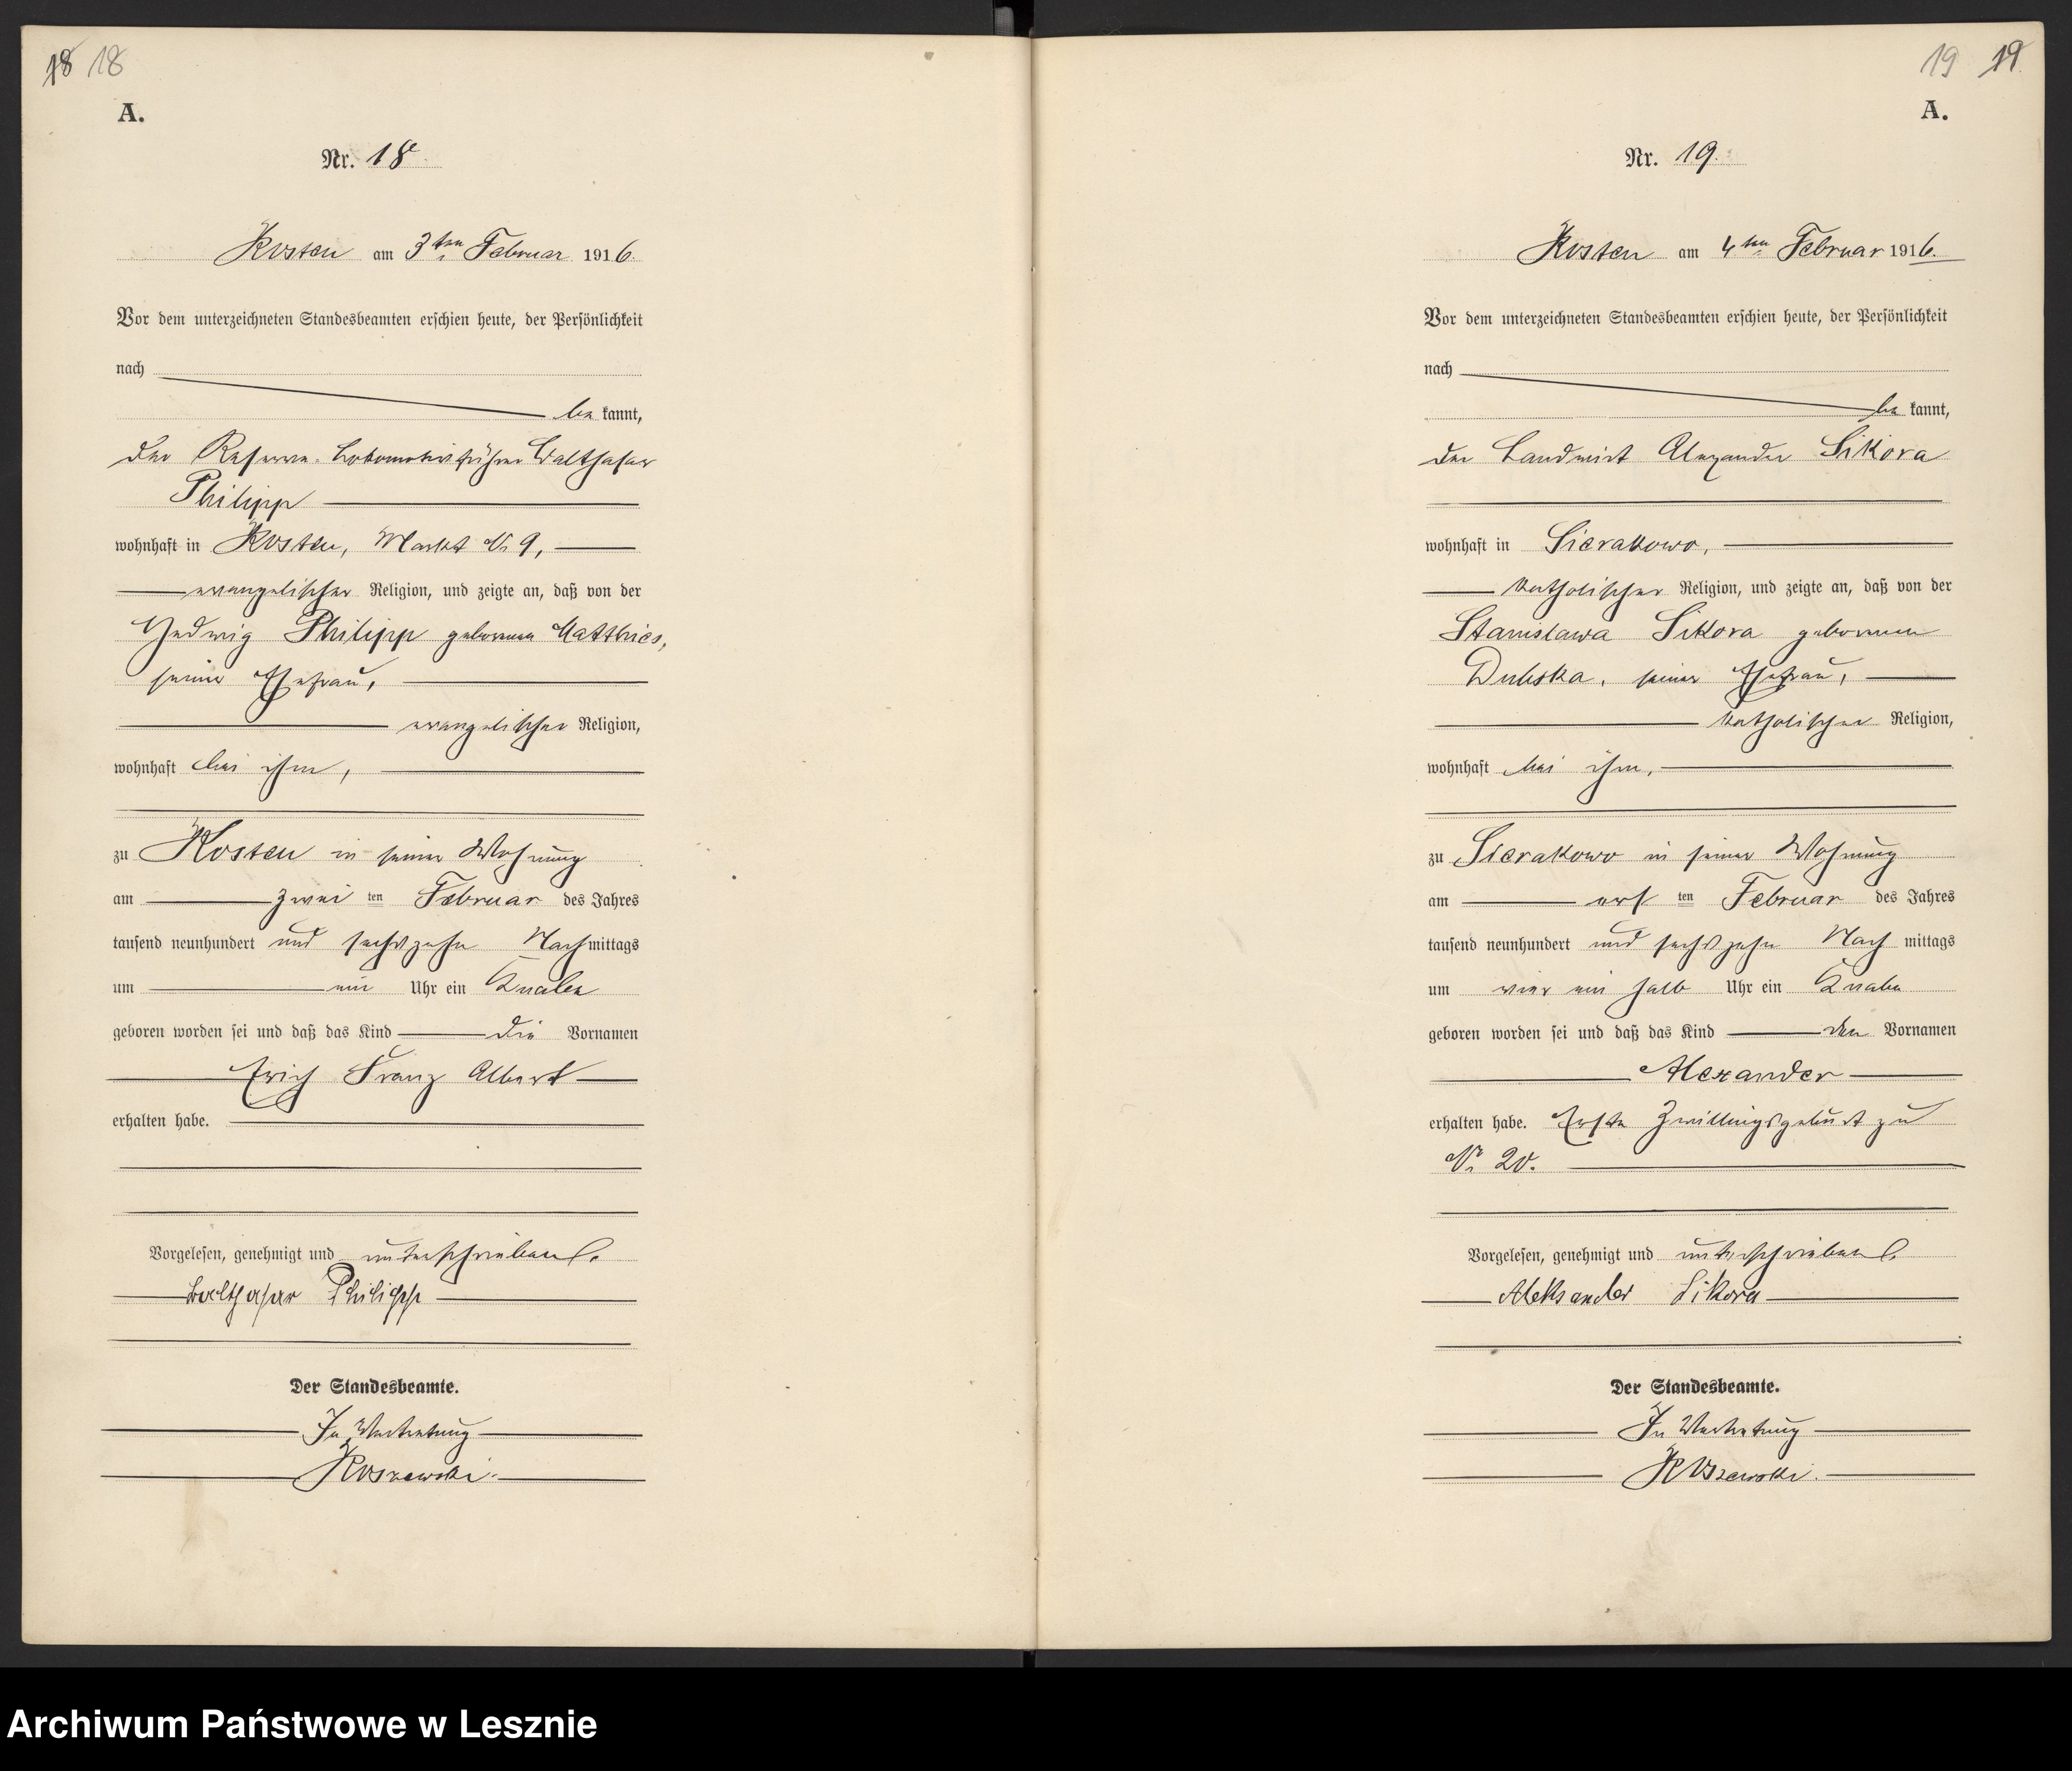 18 18
A.
Nr. 18
Kosten am 3ten Februar 1916.
Vor dem unterzeichneten Standesbeamten erschien heute, der Persönlichkeit
nach
be kannt,
der Reserve-Lokomotivführer Balthasar
Philipp
wohnhaft in Kosten, Markt No 9,
evangelischer Religion, und zeigte an, daß von der
Hedwig Philipp geborenen Matthies,
seiner Ehefrau,
evangelischer Religion,
wohnhaft bei ihm,
zu Kosten in seiner Wohnung
am zwei ten Februar des Jahres
tausend neunhundert und sechszehn Nachmittags
um ein Uhr ein Knabe
geboren worden sei und daß das Kind die Vornamen
Erich Franz Albert
erhalten habe.
Vorgelesen, genehmigt und unterschrieben.
Balthasar Philipp
Der Standesbeamte.
In Vertretung
19 19
A.
Nr. 19.
Kosten am 4ten Februar 1916.
Vor dem unterzeichneten Standesbeamten erschien heute, der Persönlichkeit
nach
be kannt,
der Landwirt Alexander Sikora
wohnhaft in Sierakowo,
katholischer Religion, und zeigte an, daß von der
Stanislawa Sikora geborenen
Dubska, seiner Ehefrau,
katholischer Religion,
wohnhaft bei ihm,
zu Sierakowo in seiner Wohnung
am ers ten Februar des Jahres
tausend neunhundert und sechszehn Nach mittags
um vier ein halb Uhr ein Knabe
geboren worden sei und daß das Kind den Vornamen
Alexander
erhalten habe. Erste Zwillingsgeburt zu
No 20.
Vorgelesen, genehmigt und unterschrieben.
Aleksander Sikora
Der Standesbeamte.
In Vertretung
Archiwum Państwowe w Lesznie